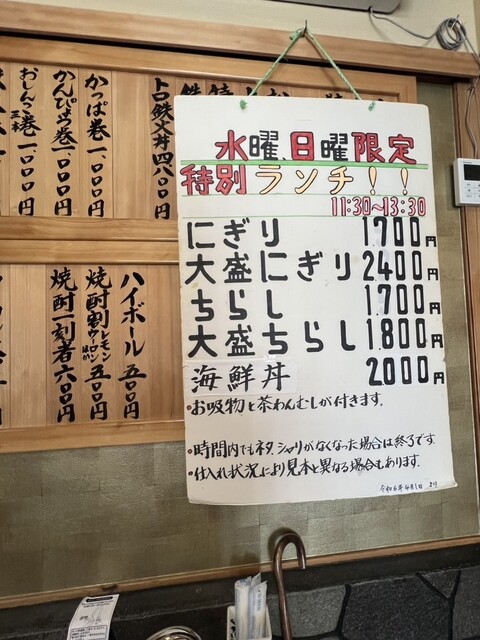 水曜、日曜限定
特別ランチ!!
11:30~13:30
にぎり 1700円
大盛にぎり 2400円
ちらし 1.700円
大盛ちらし 1.800円
海鮮丼 2000円
・お吸物と茶わんむしが付きます。
・時間内でもネタ、シャリがなくなった場合は終了です
・仕入れ状況により見本と異なる場合もあります。
令和6年4月1日 より
トロ鉄火丼 四八〇〇円
かっぱ巻 一、〇〇〇円
かんぴょう巻 一、〇〇〇円
おしんこ巻 一、〇〇〇円
ハイボール 五〇〇円
焼酎割 レモン ウーロン 五〇〇円
焼酎一刻者 六〇〇円